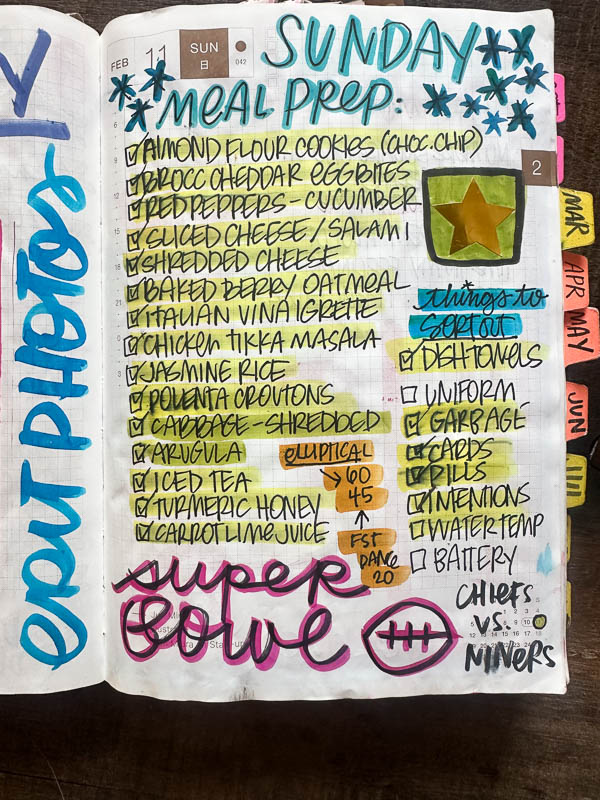 Y
ERIT PHOTOS
FEB 11 SUN 日 042
SUNDAY
MEAL PREP:
ALMOND FLOUR COOKIES (CHOC. CHIP)
BROCC CHEDDAR EGG BITES
RED PEPPERS - CUCUMBER
SLICED CHEESE / SALAMI
SHREDDED CHEESE
BAKED BERRY OATMEAL
ITALIAN VINAIGRETTE
CHICKEN TIKKA MASALA
JASMINE RICE
POLENTA CROUTONS
CABBAGE - SHREDDED
ARUGULA
ICED TEA
TURMERIC HONEY
CARROT LIME JUICE
ELLIPTICAL
60
45
FST
DANCE
20
things to
SORT OUT
DISH TOWELS
UNIFORM
GARBAGE
CARDS
PILLS
INTENTIONS
WATER TEMP
BATTERY
super
bowl
CHIEFS
VS.
NINERS
2
MAR
APR
MAY
JUN